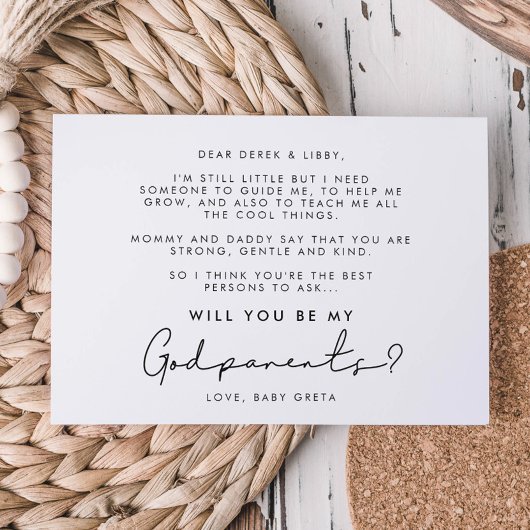 DEAR DEREK & LIBBY,
I'M STILL LITTLE BUT I NEED
SOMEONE TO GUIDE ME, TO HELP ME
GROW, AND ALSO TO TEACH ME ALL
THE COOL THINGS.
MOMMY AND DADDY SAY THAT YOU ARE
STRONG, GENTLE AND KIND.
SO I THINK YOU'RE THE BEST
PERSONS TO ASK...
WILL YOU BE MY
Godparents?
LOVE, BABY GRETA